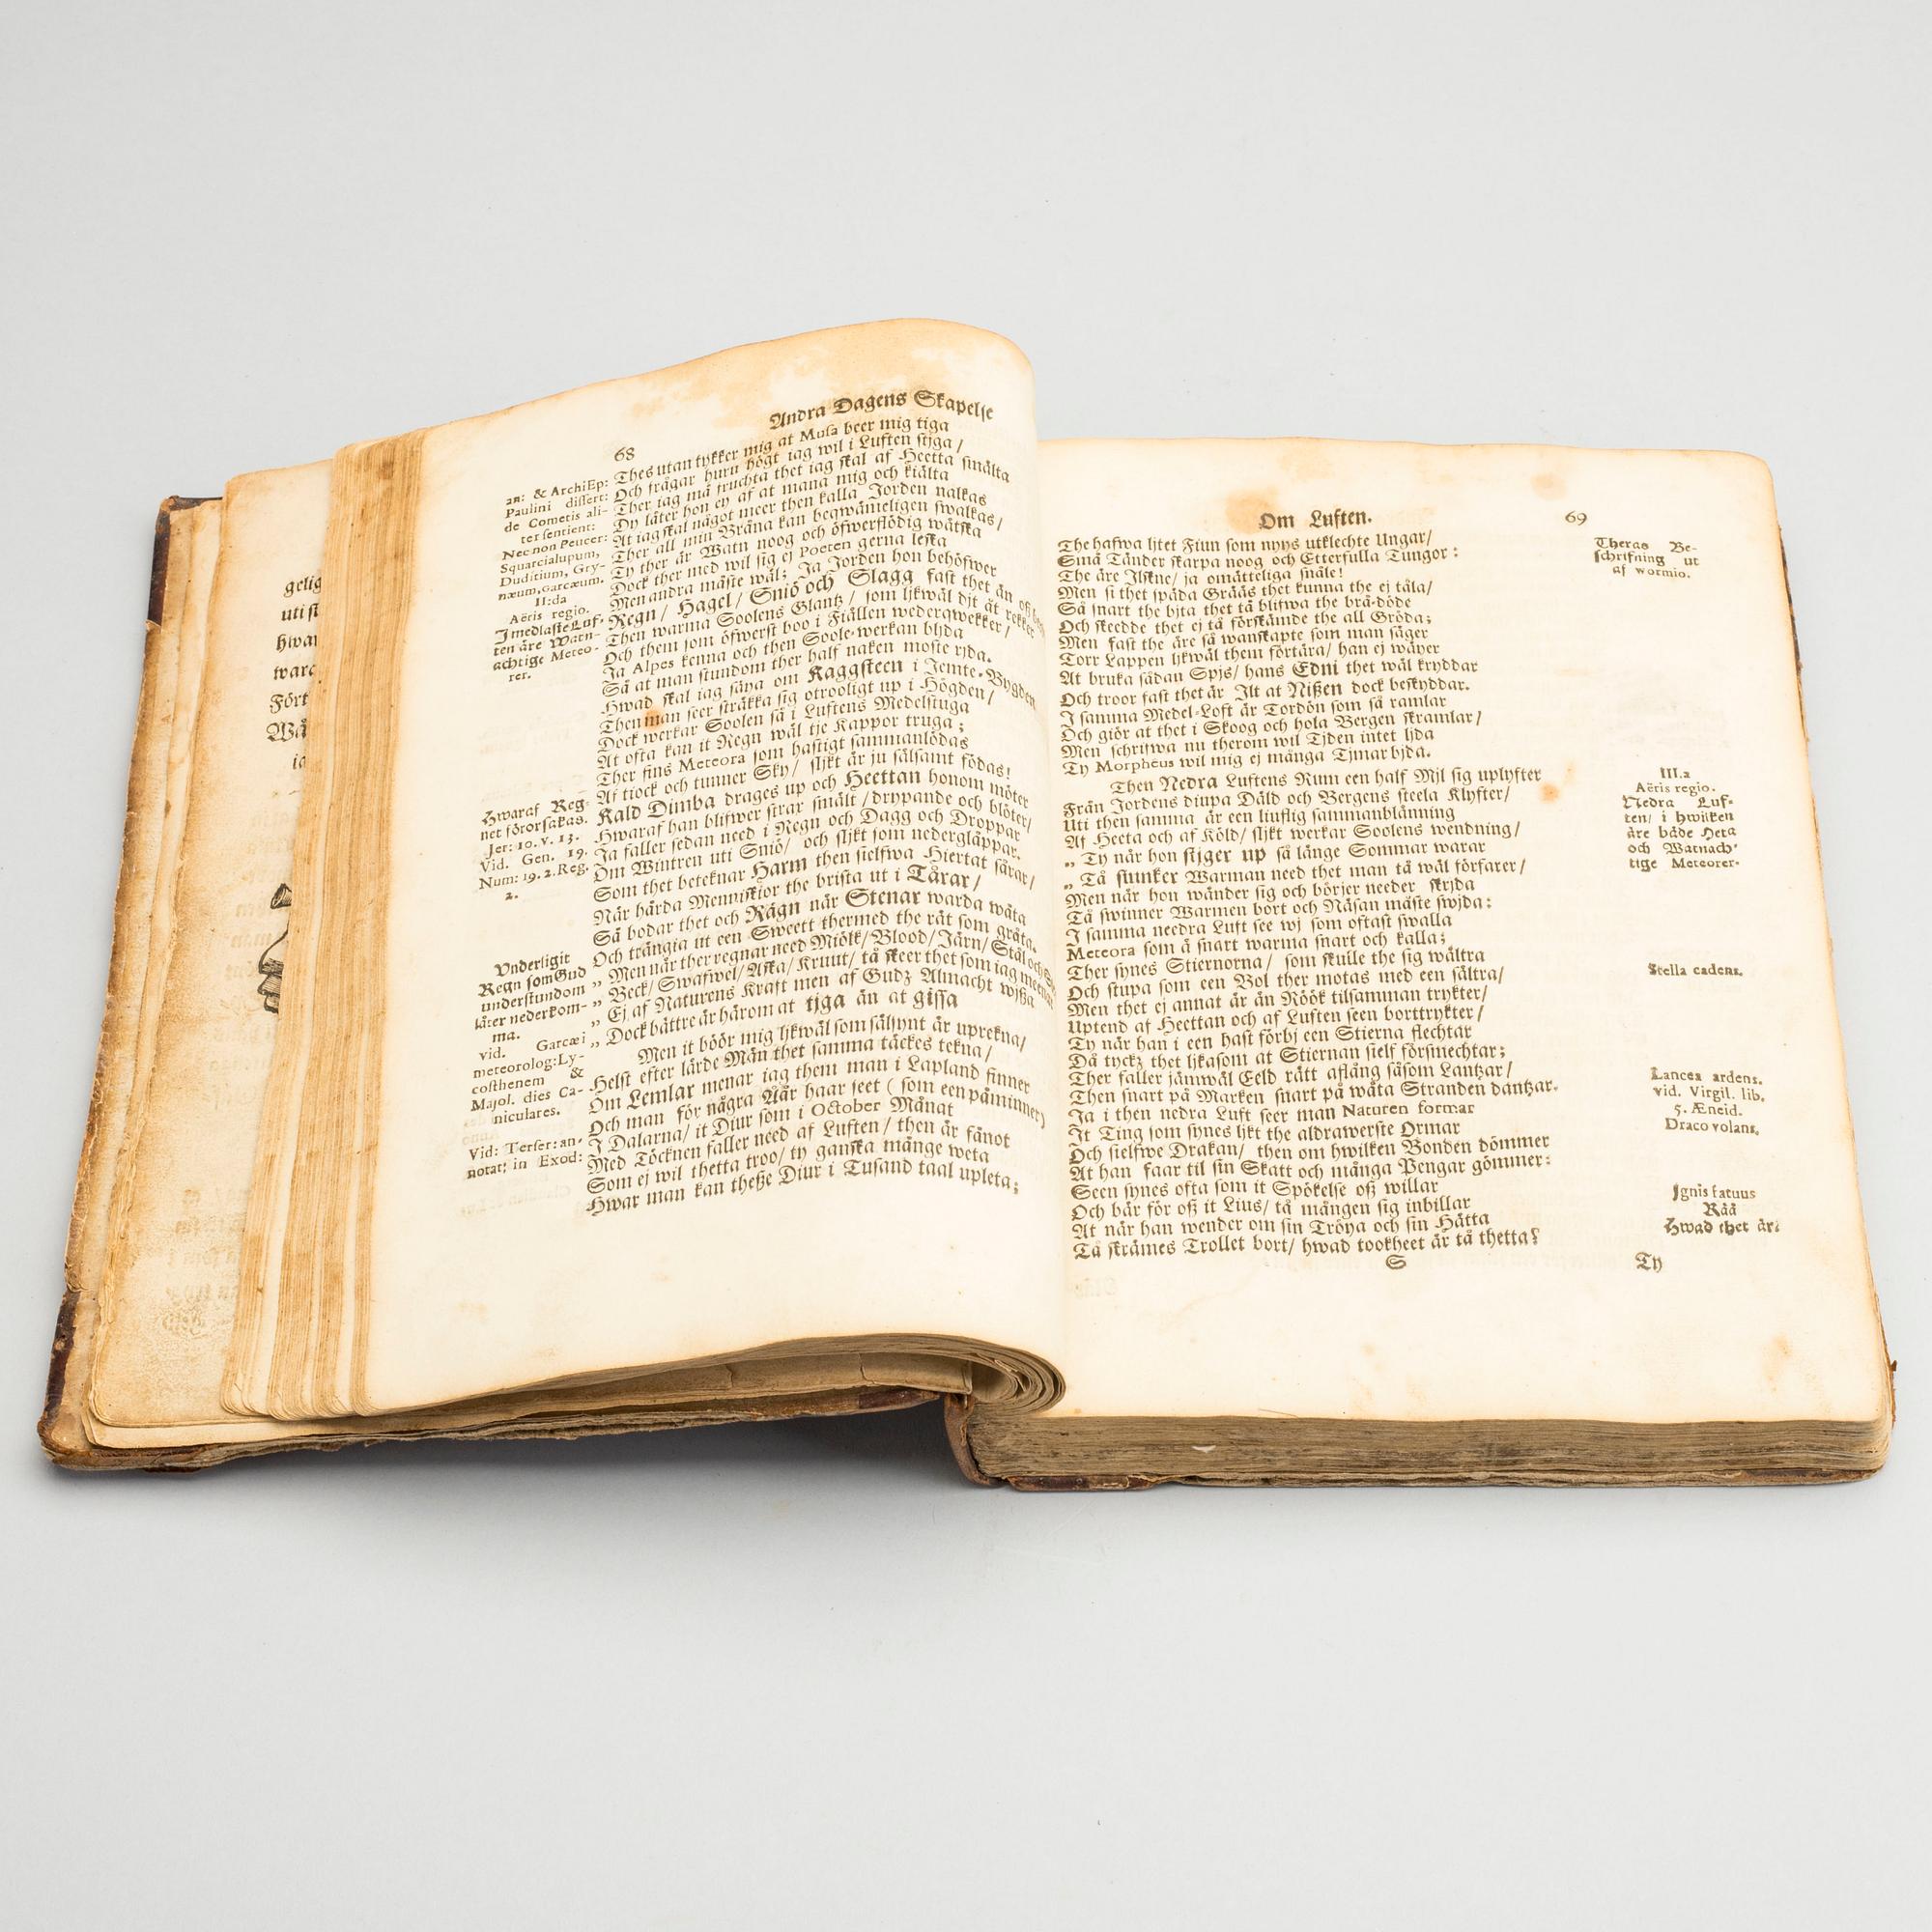 Andra Dagens Skapelse
68
Thes utan tykker mig at Musa beer mig tiga
Och frågar huru högt iag wil i Luften stjga/
Ther iag må fruchta thet iag skal af Heetta smälta
Dy låter hon ey af at mana mig och kiälta
At iag skal något meer then kalla Jorden nalkas
Ther all min Bräna kan beqwämeligen swalkas/
Ty ther är Watn noog och öfwerflödig wätska
Dock ther med wil sig ej Poeten gerna leska
Men andra måste wäl; Ja Jorden hon behöfwer
Regn/ Hagel/ Sniö och Slagg fast thet än
Then warma Soolens Glantz/ som ljkwäl djt åt rekker
Och them som öfwerst boo i Fiällen wederqwekker/
Ja Alpes kenna och then Soole-werkan bljda
Så at man stundom ther half naken moste rjda.
Hwad skal iag säya om Kaggsteen i Jemte-Bygden
Then man seer sträkka sig otrooligt up i Högden/
Dock werkar Soolen så i Luftens Medelstuga
At ofta kan it Regn wäl tje Kappor truga;
Ther fins Meteora som hastigt sammanlödas
Af tiock och tunner Sky/ sljkt är ju sälsamt födas!
Kald Dimba drages up och Heettan honom möter
Hwaraf han blifwer strax smält/ drypande och blöter/
Ja faller sedan need i Regn och Dagg och Droppar
Om Wintren uti Sniö/ och sljkt som nedergläppar.
Som thet beteknar Harm then sielfwa Hiertat sårar/
När hårda Menniskior the brista ut i Tårar/
Så bodar thet och Rägn när Stenar warda wåta
Och trängia ut een Sweett thermed the rät som gråta.
„ Men när ther regnar need Miölk/ Blood/ Järn/ Stål och
„ Beck/ Swafwel/ Aska/ Kruut/ tå skeer thet som iag
„ Ej af Naturens Kraft men af Gudz Almacht wjßa
„ Dock bättre är härom at tjga än at gissa
Men it böör mig ljkwäl som sälsynt är uprekna/
Helst efter lärde Män thet samma täckes tekna/
Om Lemlar menar iag them man i Lapland finner
Och man för några Åår haar seet (som een påminner)
I Dalarna/ it Diur som i October Månat
Med Töcknen faller need af Luften/ then är fånot
Som ej wil thetta troo/ ty ganska månge weta
Hwar man kan theße Diur i Tusand taal upleta;
an: & ArchiEp:
Paulini dissert:
de Cometis ali-
ter sentient:
Nec non Peucer:
Squarcialupum,
Duditium, Gry-
næum, Garcæum.
II:da
Aëris regio.
I medlaste Luf-
ten äre Watn-
achtige Meteo-
rer.
Hwaraf Reg-
net förorsakas.
Jer: 10. v. 13.
Vid. Gen. 19.
Num: 19. 2. Reg.
2.
Underligit
Regn som Gud
understundom
låter nederkom-
ma.
vid. Garcæi
meteorolog: Ly-
costhenem &
Majol. dies Ca-
niculares.
Vid: Terser: an-
notat: in Exod:
Om Luften.
69
The hafwa ljtet Fiun som nyys utklechte Ungar/
Små Tänder skarpa noog och Etterfulla Tungor:
The äre Ilskne/ ja omätteliga snåle!
Men si thet späda Grääs thet kunna the ej tåla/
Så snart the bjta thet tå blifwa the brå-döde
Och skeedde thet ej tå förskämde the all Gröda;
Men fast the äre så wanskapte som man säger
Torr Lappen ljkwäl them förtära/ han ej wäyer
At bruka sådan Spjs/ hans Edni thet wäl kryddar
Och troor fast thet är Ilt at Nißen dock beskyddar.
I samma Medel-Loft är Tordön som så ramlar
Och giör at thet i Skoog och hola Bergen skramlar/
Men schrifwa nu therom wil Tjden intet ljda
Ty Morpheus wil mig ej många Tjmar bjda.
Then Nedra Luftens Rum een half Mjl sig uplyfter
Från Jordens diupa Däld och Bergens steela Klyfter/
Uti then samma är een liuflig sammanblänning
Af Heeta och af Köld/ sljkt werkar Soolens wendning/
„ Ty när hon stjger up så länge Sommar warar
„ Tå siunker Warman need thet man tå wäl förfarer/
Men när hon wänder sig och börjer needer skrjda
Tå swinner Warmen bort och Näsan måste swjda:
I samma needra Luft see wj som oftast swalla
Meteora som ä snart warma snart och kalla;
Ther synes Stiernorna/ som skulle the sig wältra
Och stupa som een Bol ther motas med een sältra/
Men thet ej annat är än Röök tilsamman trykter/
Uptend af Heettan och af Luften seen borttrykter/
Ty när han i een hast förbj een Stierna flechtar
Då tyckz thet ljkasom at Stiernan sielf försmechtar;
Ther faller jämwäl Eeld rätt aflång såsom Lantzar/
Then snart på Marken snart på wåta Stranden dantzar.
Ja i then nedra Luft seer man Naturen formar
It Ting som synes ljkt the aldrawerste Ormar
Och sielfwe Drakan/ then om hwilken Bonden dömmer
At han faar til sin Skatt och många Pengar gömmer:
Seen synes ofta som it Spökelse oß willar
Och bär för oß it Lius/ tå mången sig inbillar
At när han wender om sin Tröya och sin Hätta
Tå skrämes Trollet bort/ hwad tookheet är tå thetta?
S
Ty
Theras Be-
schrifning ut
af wormio.
III.a
Aëris regio.
Nedra Luf-
ten/ i hwilken
äre både Heta
och Watnach-
tige Meteorer.
Stella cadens.
Lancea ardens.
vid. Virgil. lib.
5. Æneid.
Draco volans.
Ignis fatuus
Råå
Hwad thet är:
gelig
uti
hwar
ware
Fört